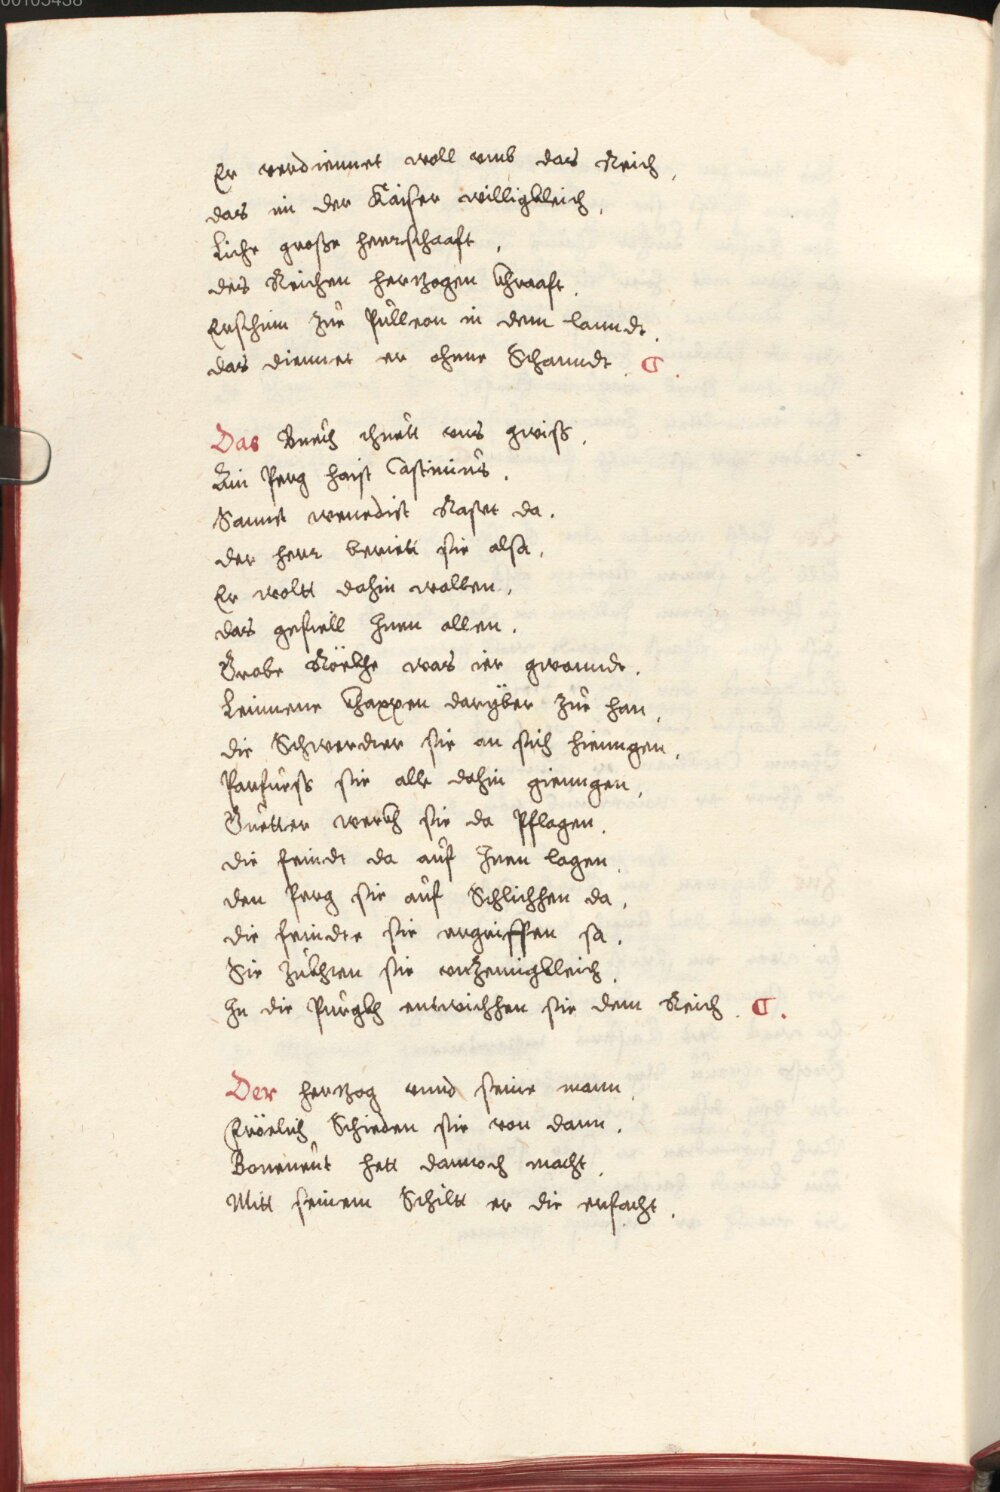 00105438
Er verdiennet woll vmb das Reich,
das im der Kaiser willigkleich,
Liche große herrschaafft,
des Reichen herzogen Chraafft.
Erschein zuͦe Puͤlleon in dem lanndt.
das diennet er ohne Schanndt. ¶.
Das Buech thuett vns gwiss.
Ain Perg haist Castinius.
Sannt Raster da.
der herr berieti sie alsa.
Er woltt dahin wallen.
das gefiell Inen allen.
Grobe Röckhe was ier gwanndt.
Leinnene Chappen darÿber zuͦe han.
die Schwerdter sie an sich hienngen.
Parfuess sie alle dahin giengen.
Guetter werch sie da Pflagen.
die feindt da auf Inen lagen.
den Perg sie auf Schlichhen da.
die feindte sie ergriffen sa.
Sie Zukhten sie vnzennigkleich.
In die Purgkh entwichhen sie dem Reich. ¶.
Der herzog vnnd seine mann.
Frölich Schieden sie von dann.
Bonenent hett dannoch macht.
Mitt seinem Schiltt er die erfacht.